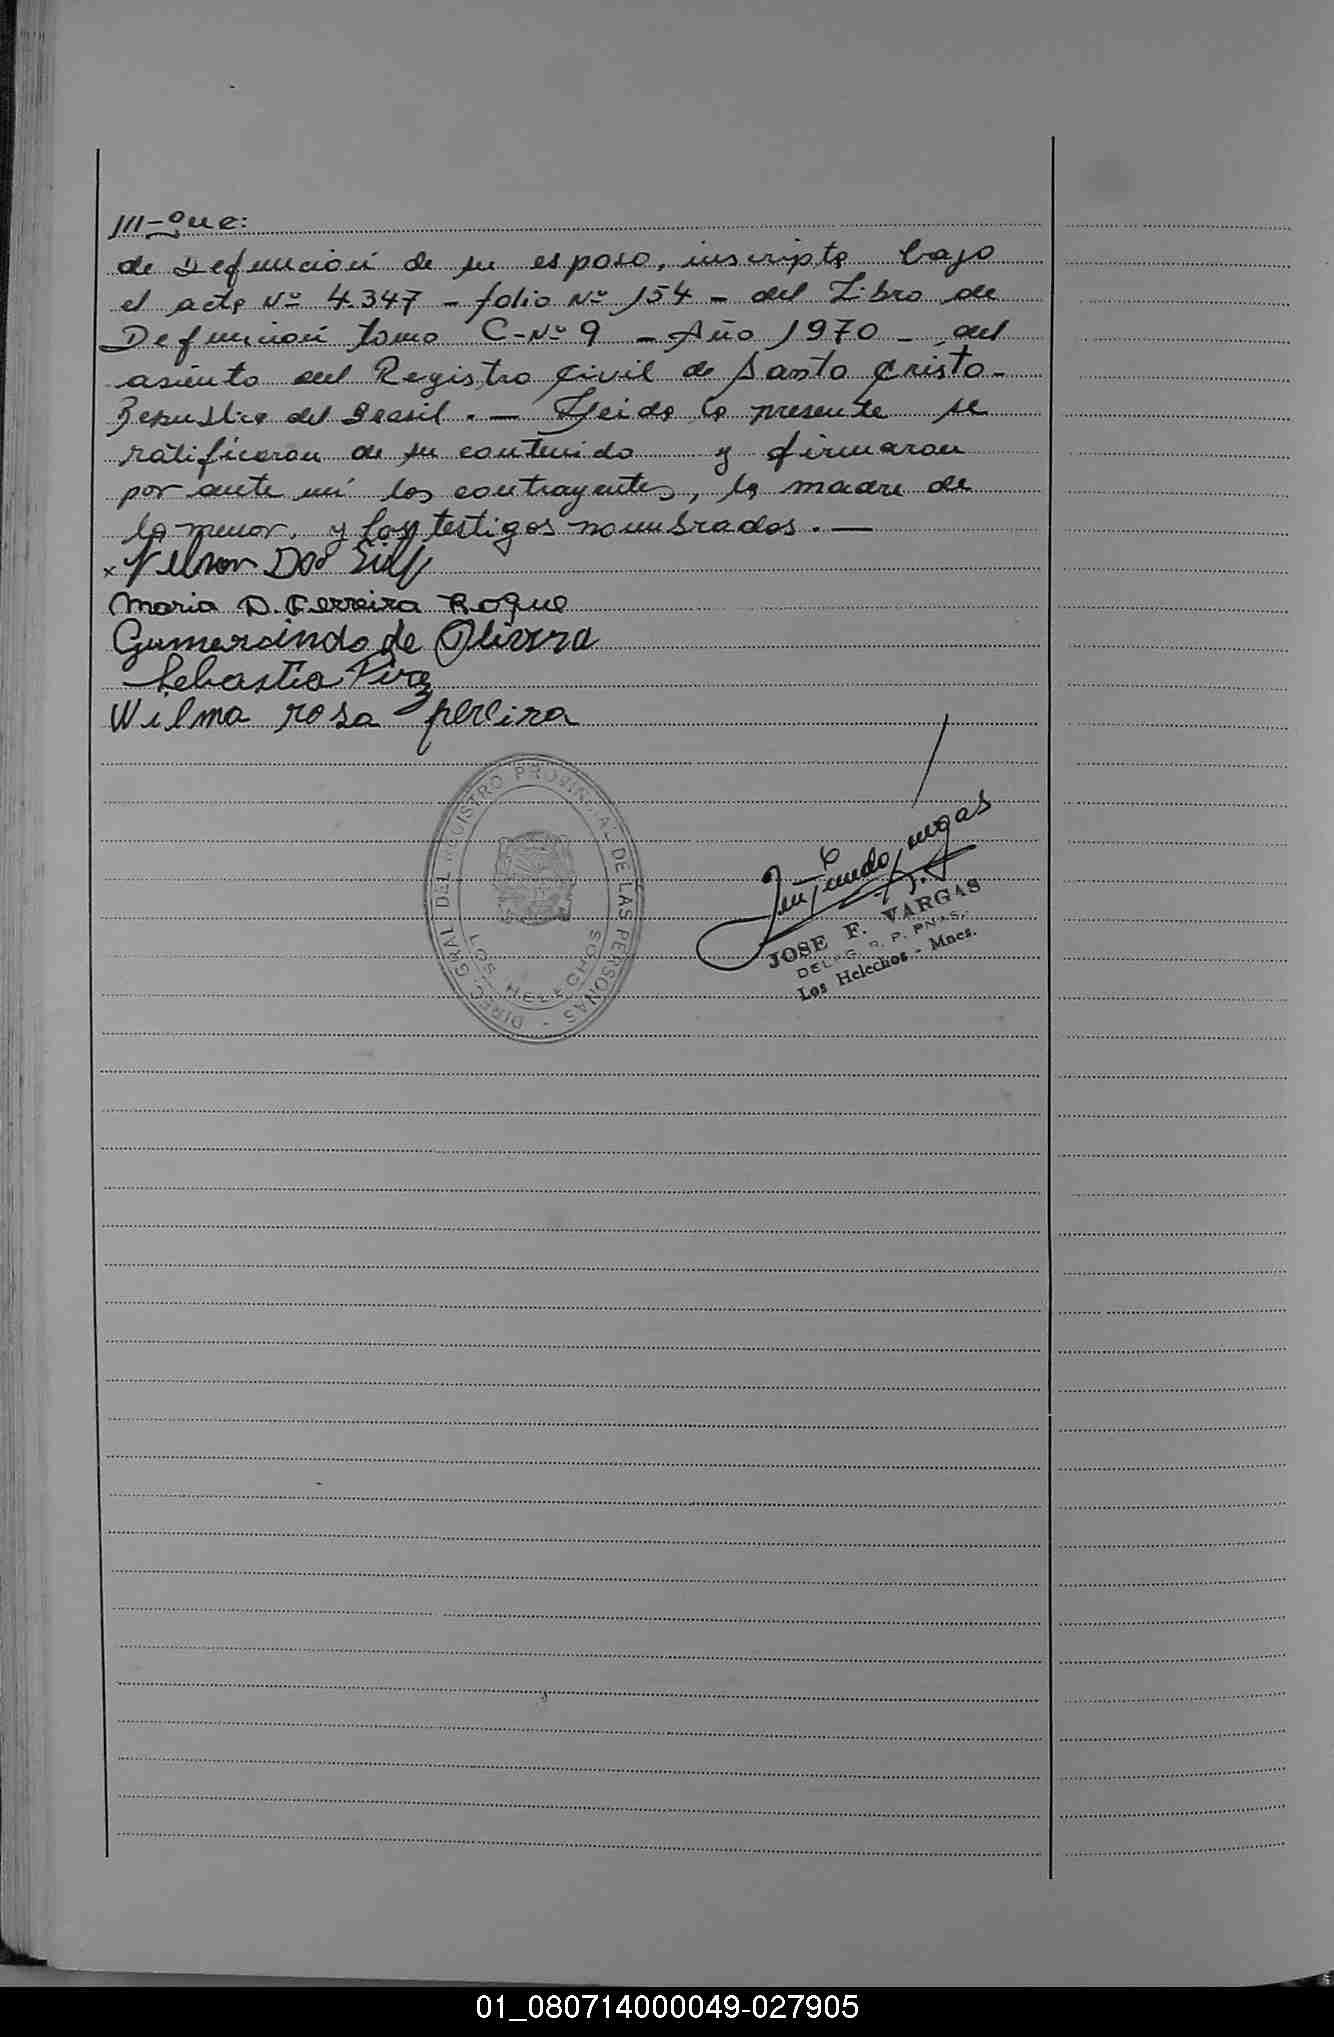 ///-que:
de Defunción de su esposo, inscripta bajo
el acta Nº 4.347 - folio Nº 154 - del Libro de
Defunción tomo C-Nº 9 - Año 1970 - del
asiento del Registro Civil de Santo Cristo -
Republica del Brasil. - Leida la presente se
ratificaron de su contenido y firmaron
por ante mi los contrayentes, la madre de
la menor, y los testigos nombrados. -
x Nelson Dos Silv
Maria D. Ferreira Roque
Gumercindo de Olivera
Sebastia Piraz
Wilma rosa pereira
DIREC. GRAL DEL REGISTRO PROVINCIAL DE LAS PERSONAS -
LOS HELECHOS
JOSE F. VARGAS
DELEG. R. P. PNAS.
Los Helechos - Mnes.
01_080714000049-027905